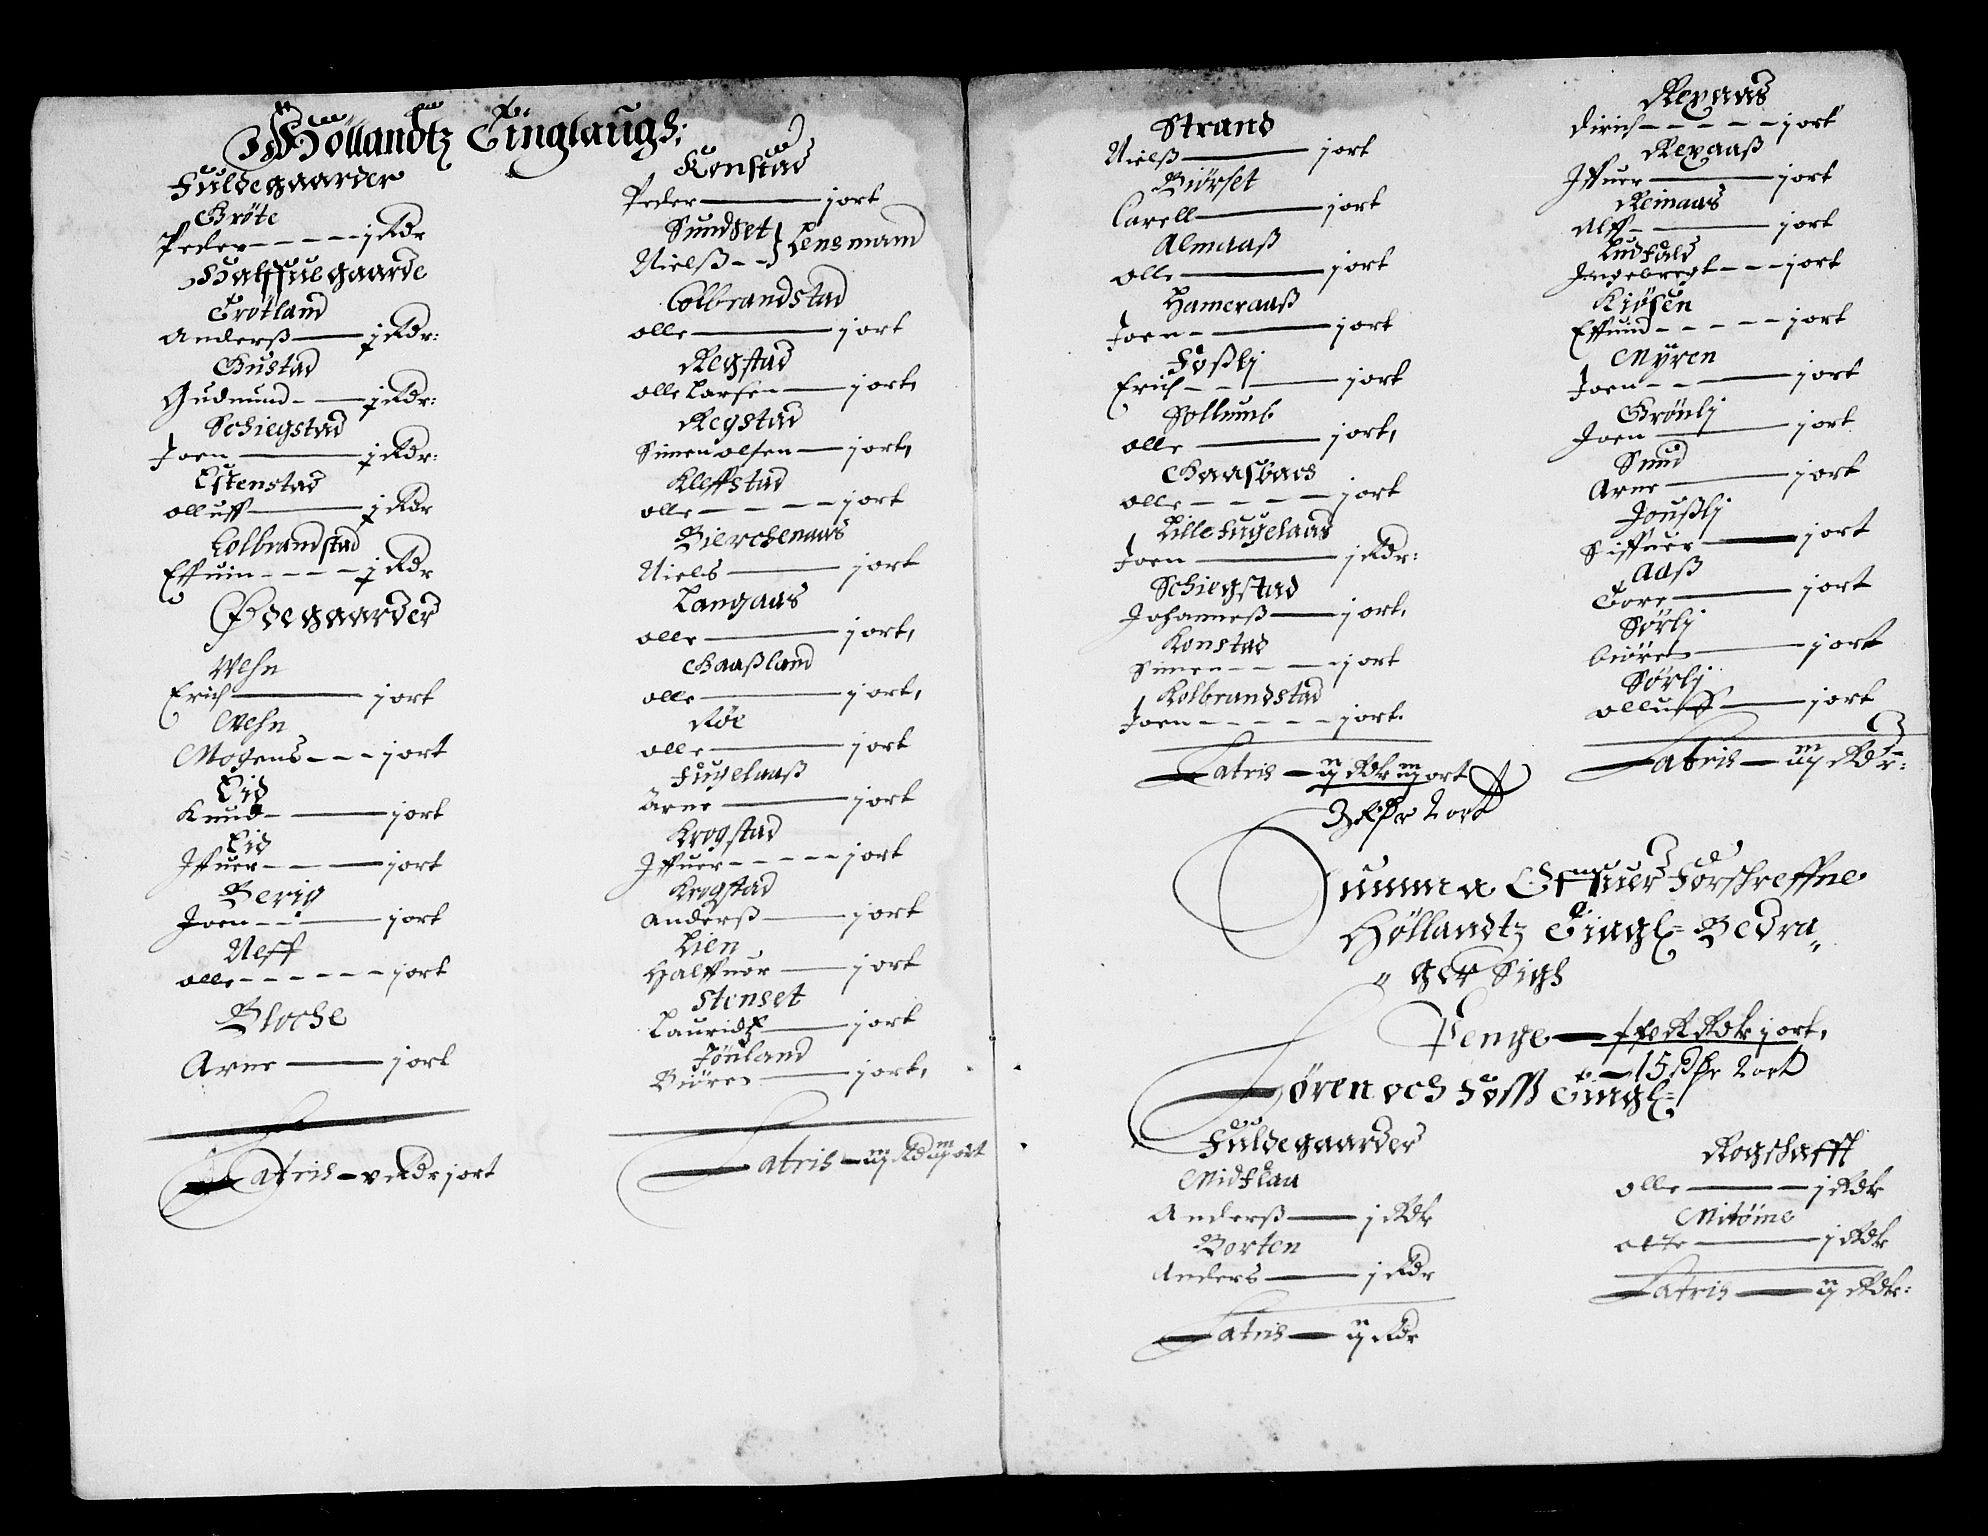 Höllandtz Tinglaugh:
Fuldegaarder
Gröte
Peder ----- j Rdr
Halffue gaarde
Trotland
Anderß — ½ Rdr:
Gustad
Gudmund -- — ½ Rdr:
Schiegstad
Joen — ½ Rdr:
Estenstad
Olluff — ½ Rdr
Colbrandstad
Effuin ---- ½ Rdr
Ødegaarder
Wehn
Erich — j ort
Wehn
Mogens --- j ort
Eid
Knud - — j ort
Eid
Iffuer --- — j ort
Berig
Joen --- — j ort
Neff
olle ------ j ort
Bloche
Arne — j ort
Latris — v Rdr j ort
Konstad
Peder — j ort
Sundset
Nielß -- } Lensmand
Colbrandstad
olle — j ort
Regstad
olle Larsen — j ort,
Regstad
Simen olsen — j ort,
Kleffstad
olle ----- j ort
Bierchenaas
Niels — j ort
Langaas
olle — j ort,
Haaßland
olle — j ort,
Röe
olle — j ort
Fugelaaß
Arne — j ort
Krogstad
Iffuer ----- j ort
Krogstad
Anderß — j ort
Lien
Halffuor — j ort
Stenset
Lauridtz — j ort
Jönland
Biören — j ort,
Latris — iij Rd iij ort
Strand
Nielß — j ort
Biörset
Carell — j ort
Almaaß
olle — j ort
Hameraaß
Joen - — j ort
Foßlj
Erich -- — j ort
Sollumb
olle — j ort,
Haasbacs
olle ----- j ort
Lille Fugelaas
Joen — j Rdr:
Schiegstad
Johanneß — j ort,
Konstad
Simen ---- j ort
Kolbrandstad
Joen ----- j ort.
Latris — ij Rdr iij ort
Revaas
Dirich ----- j ort
Revaaß
Iffuer — j ort
Reinaas
Alff - — j ort
Ludfald
Ingebregt --- j ort
Kiösen
Effuind ----- j ort
Myren
Joen -- — j ort
Grönlj
Joen — j ort
Sund
Arne — j ort
Joußlj
Siffuer — j ort
Aaß
Tore — j ort
Sörlj
biören — j ort
Sörlj
olluff — j ort
Latris — iij Rdr:
Summa Offuer Forschreffne
Höllandtz Tingl= Bedra„
„ger Sigh
Penge — Rdr j ort,
15 2 ort
Hören och Foss Tingl=
Fuldegaarder
Midflaa
Anderß — j Rdr
Borten
Anders — j Rdr
Latris — ij Rdr
Rogschafft
olle — j Rdr
Mitöme
otte — j Rdr
Latris — ij Rdr: